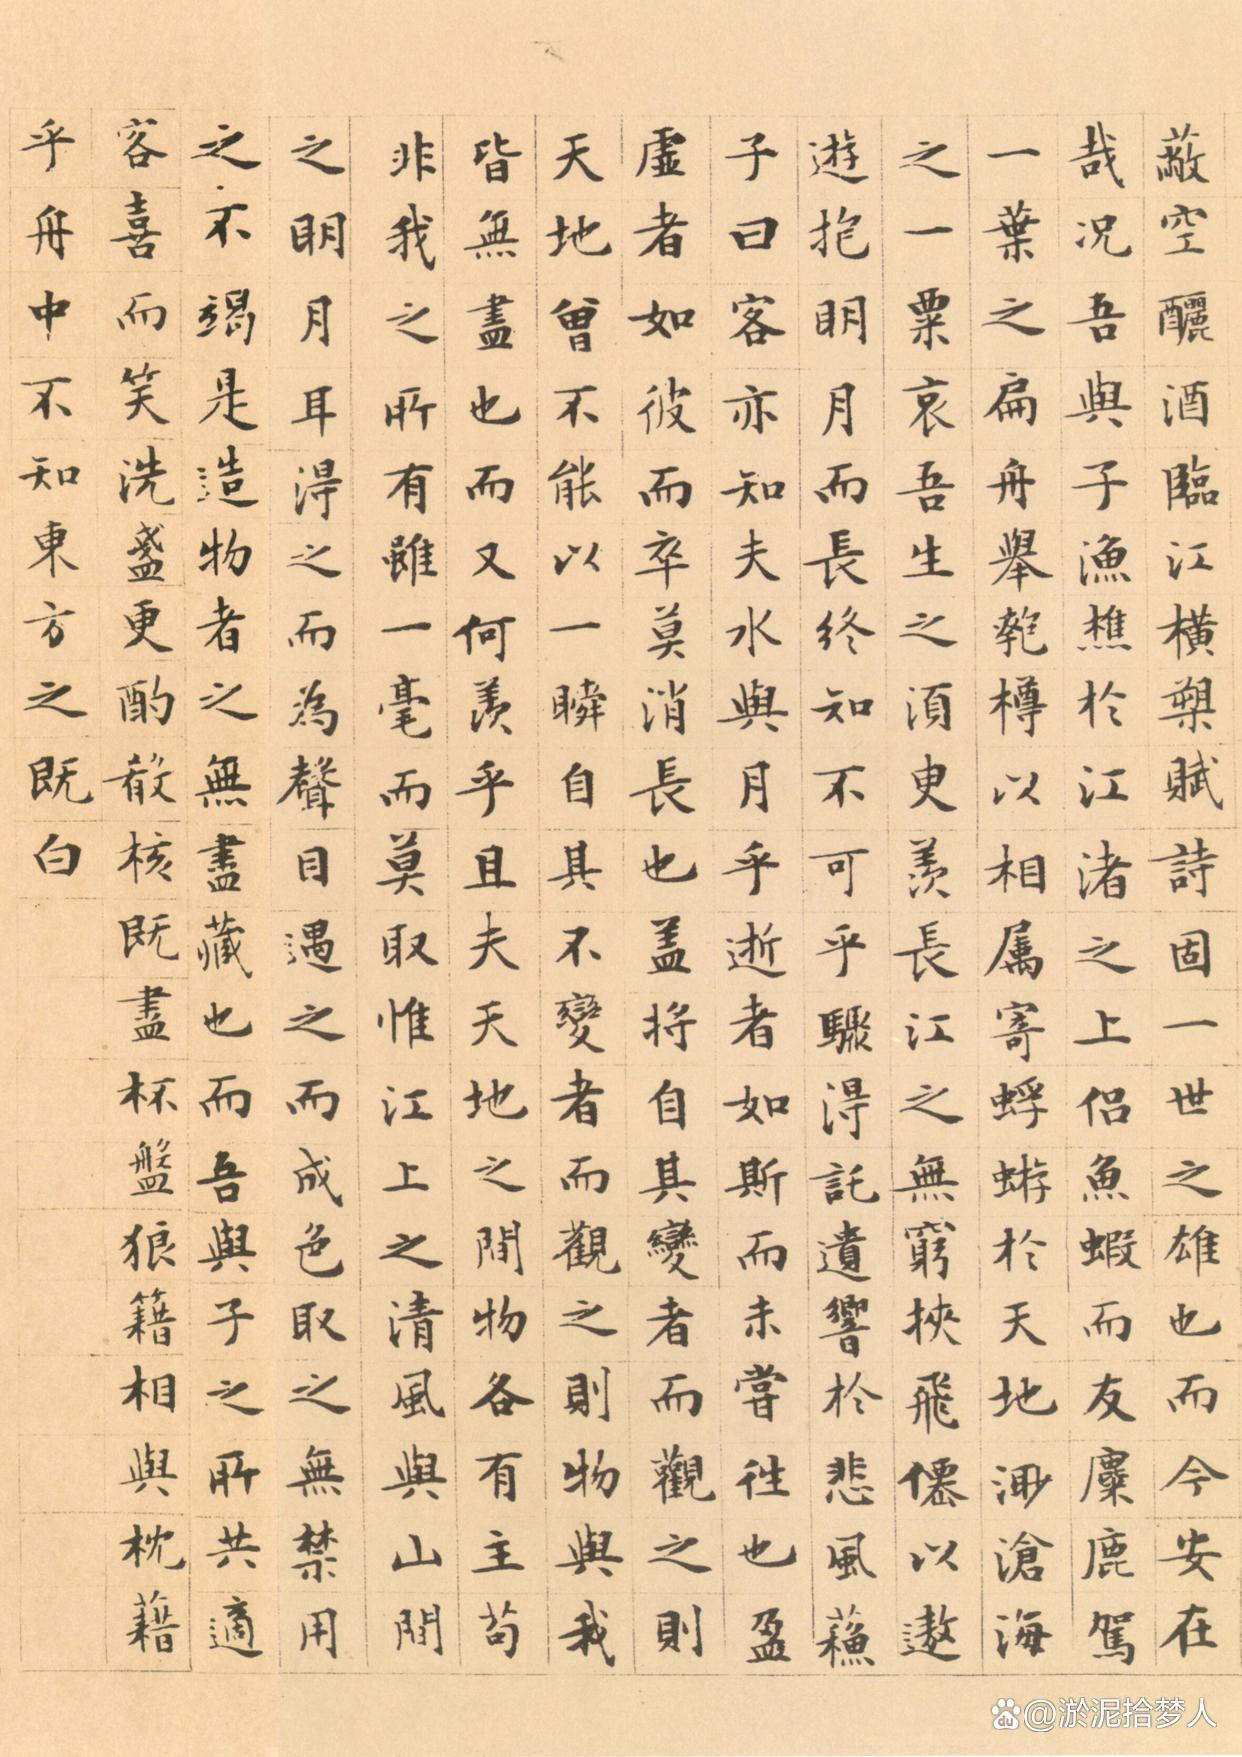 蔽空釃酒臨江橫槊賦詩固一世之雄也而今安在
哉況吾與子漁樵於江渚之上侶魚蝦而友麋鹿駕
一葉之扁舟舉匏樽以相屬寄蜉蝣於天地渺滄海
之一粟哀吾生之須臾羨長江之無窮挾飛僊以遨
遊抱明月而長終知不可乎驟得託遺響於悲風蘇
子曰客亦知夫水與月乎逝者如斯而未嘗往也盈
虛者如彼而卒莫消長也蓋將自其變者而觀之則
天地曾不能以一瞬自其不變者而觀之則物與我
皆無盡也而又何羨乎且夫天地之間物各有主苟
非我之所有雖一毫而莫取惟江上之清風與山間
之明月耳得之而為聲目遇之而成色取之無禁用
之不竭是造物者之無盡藏也而吾與子之所共適
客喜而笑洗盞更酌殽核既盡杯盤狼籍相與枕藉
乎舟中不知東方之既白
@淤泥拾梦人